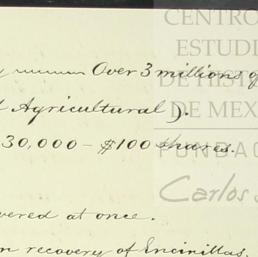 CENTRO
ESTUDI
DE HISTO
DE MEX
FUNDAC
Carlos S
Over 3 millions of
Agricultural ).
30,000 - $100 shares.
vered at once.
n recovery of Encinillas.